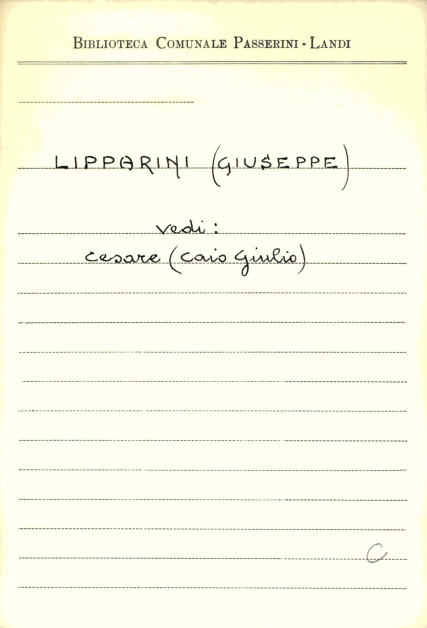 BIBLIOTECA COMUNALE PASSERINI - LANDI
LIPPARINI (GIUSEPPE)
vedi:
Cesare (Caio Giulio)
C